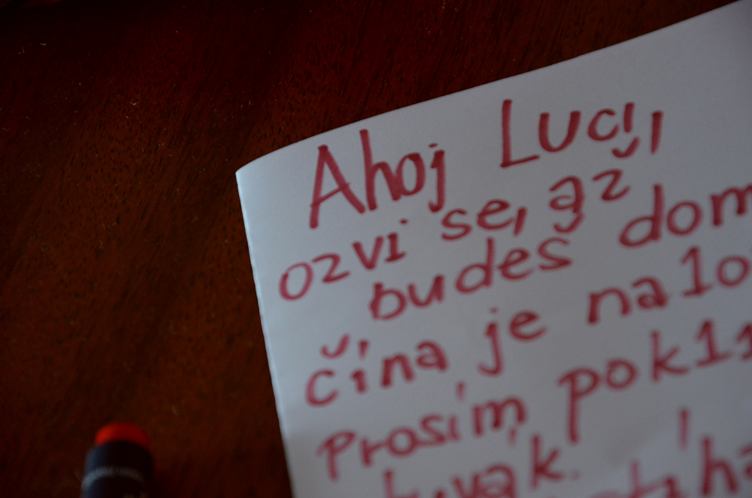 Ahoj Luci,
ozvi se, až
budeš dom
čína je nalo
Prosím pokli